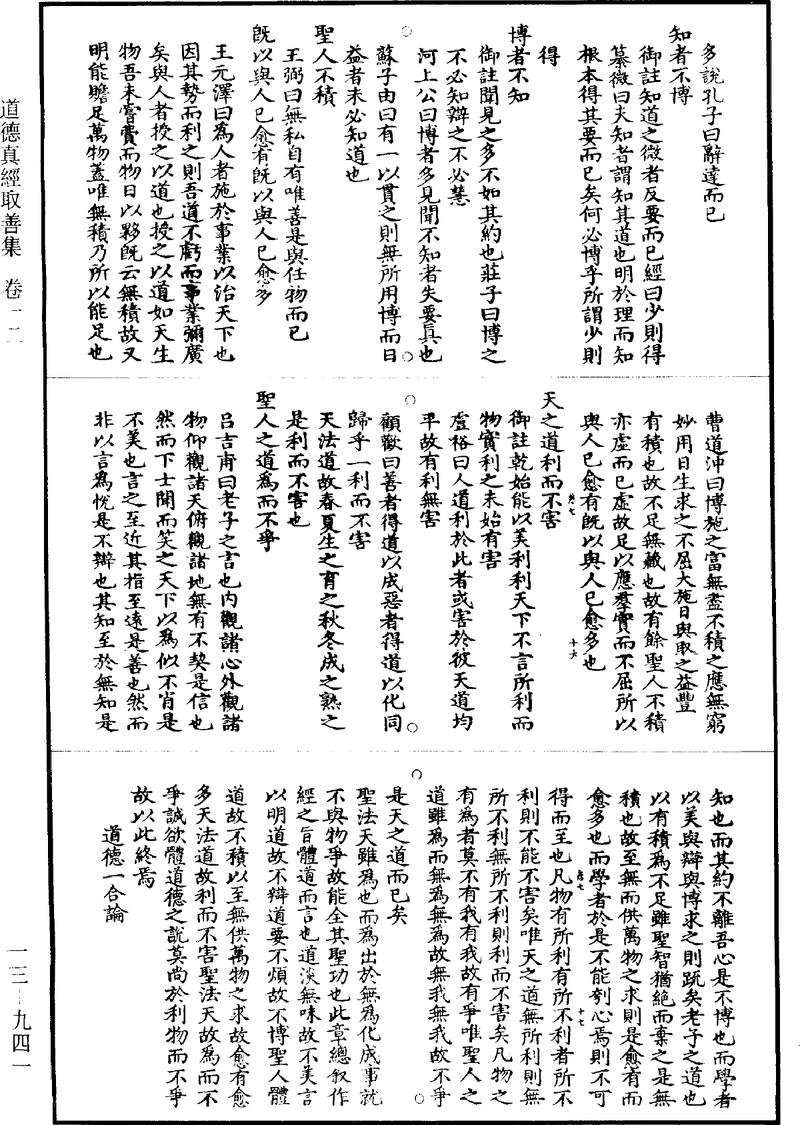 多說孔子曰辭達而已
知者不博
御註知道之微者反要而已經曰少則得
纂微曰夫知者謂知其道也明於理而知
根本得其要而已矣何必博乎所謂少則
得
博者不知
御註聞見之多不如其約也莊子曰博之
不必知辯之不必慧
河上公曰博者多見聞不知者失要真也
蘇子由曰有一以貫之則無所用博而日
益者未必知道也
聖人不積
王弼曰無私自有唯善是與任物而已
既以與人已愈有既以與人已愈多
王元澤曰為人者施於事業以治天下也
因其勢而利之則吾道不虧而事業彌廣
矣與人者授之以道也授之以道如天生
物吾未嘗費而物日以夥既云無積故又
明能贍足萬物蓋唯無積乃所以能足也
曹道沖曰博施之富無盡不積之應無窮
妙用日生求之不屈大施日與取之益豐
有積也故不足無藏也故有餘聖人不積
亦虛而已虛故足以應羣實而不屈所以
與人已愈有既以與人已愈多也
十六
天之道利而不害
御註乾始能以美利利天下不言所利而
物實利之未始有害
盧裕曰人道利於此者或害於彼天道均
平故有利無害
顧歡曰善者得道以成惡者得道以化同
歸乎一利而不害
天法道故春夏生之育之秋冬成之熟之
是利而不害也
聖人之道為而不爭
呂吉甫曰老子之言也內觀諸心外觀諸
物仰觀諸天俯觀諸地無有不契是信也
然而下士聞而笑之天下以為似不肖是
不美也言之至近其指至遠是善也然而
非以言為悅是不辯也其知至於無知是
知也而其約不離吾心是不博也而學者
以美與辯與博求之則疏矣老子之道也
以有積為不足雖聖智猶絕而棄之是無
積也故至無而供萬物之求則是愈有而
愈多也而學者於是不能刳心焉則不可
十七
得而至也凡物有所利有所不利者所不
利則不能不害矣唯天之道無所利則無
所不利無所不利則利而不害矣凡物之
有為者莫不有我有我故有爭唯聖人之
道雖為而無為無為故無我無我故不爭
是天之道而已矣
聖法天雖為也而為出於無為化成事就
不與物爭故能全其聖功也此章總叙作
經之旨體道而言也道淡無味故不美言
以明道故不辯道要不煩故不博聖人體
道故不積以至無供萬物之求故愈有愈
多天法道故利而不害聖法天故為而不
爭誠欲體道德之說莫尚於利物而不爭
故以此終焉
道德一合論
道德真經取善集 卷一二
一三—九四一